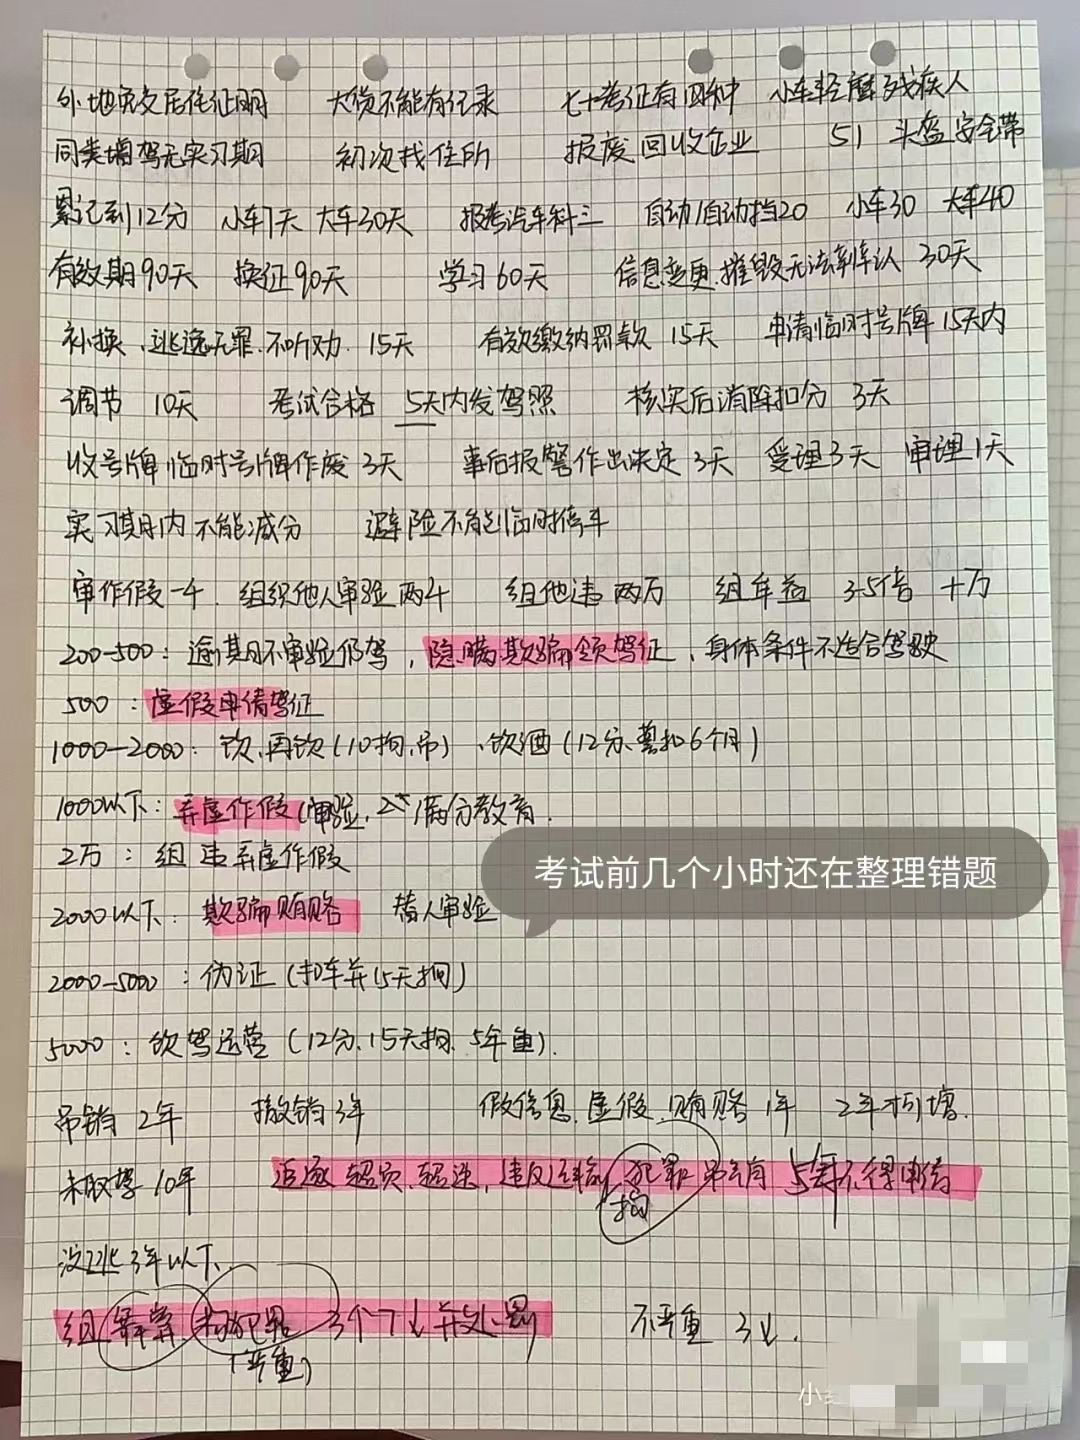 外地免交居住证明 大货不能有记录 七十考证有四种 小车轻 残疾人
同类增驾无实习期 初次找住所 报废回收企业 51 头盔安全带
累记到12分 小车7天 大车30天 报考汽车科三 自动/自动挡20 小车30 大车40
有效期90天 换证90天 学习60天 信息变更、摧毁无法辨认 30天
补换、逃逸无罪、不听劝、15天 有效缴纳罚款 15天 申请临时号牌15天内
调节 10天 考试合格 5天内发驾照 核实后消除扣分 3天
收号牌临时号牌作废3天 事后报警作出决定3天 受理3天 审理1天
实习期内不能减分 避险不能临时停车
审作假一千、组织他人审验两千 组他违 两万 组牟益 3-5倍 十万
200-500:逾期不审验仍驾,隐瞒欺骗领驾证、身体条件不适合驾驶
500:虚假申请驾证
1000-2000:饮、再饮(10拘、吊)、饮酒(12分、暂扣6个月)
1000以下:弄虚作假(审验、满分教育.
2万:组 违弄虚作假
考试前几个小时还在整理错题
2000以下:欺骗贿赂 替人审验
2000-5000:伪证(扣车并15天拘)
5000:饮驾运营(12分、15天拘、5年重).
吊销 2年 撤销3年 假信息、虚假、贿赂1年 2年才可增.
未取 10年 追逐、超员、超速、违反 犯罪 吊 5年不得申请
拘
没逃3年以下、
组 犯罪 3个7↓并处罚 不严重 3↓.
(严重)
小